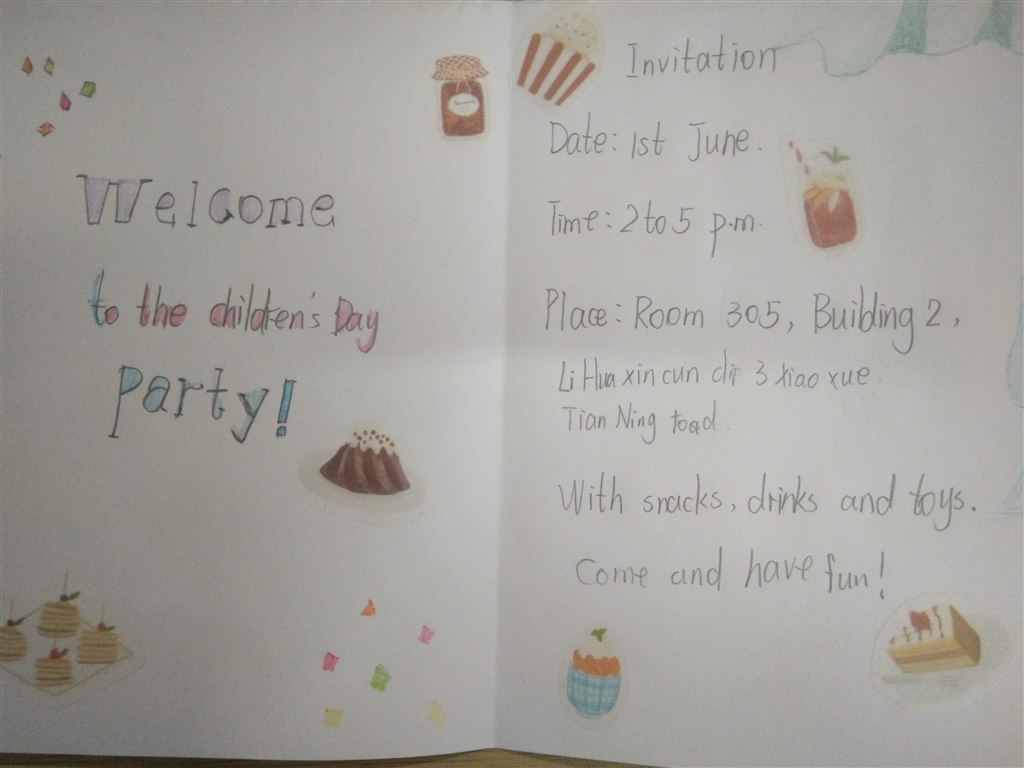 Welcome
to the children's Day
Party!
Invitation
Date: 1st June.
Time: 2 to 5 p.m.
Place: Room 305, Building 2,
Li Hua xin cun di 3 xiao xue
Tian Ning road.
With snacks, drinks and toys.
Come and have fun!